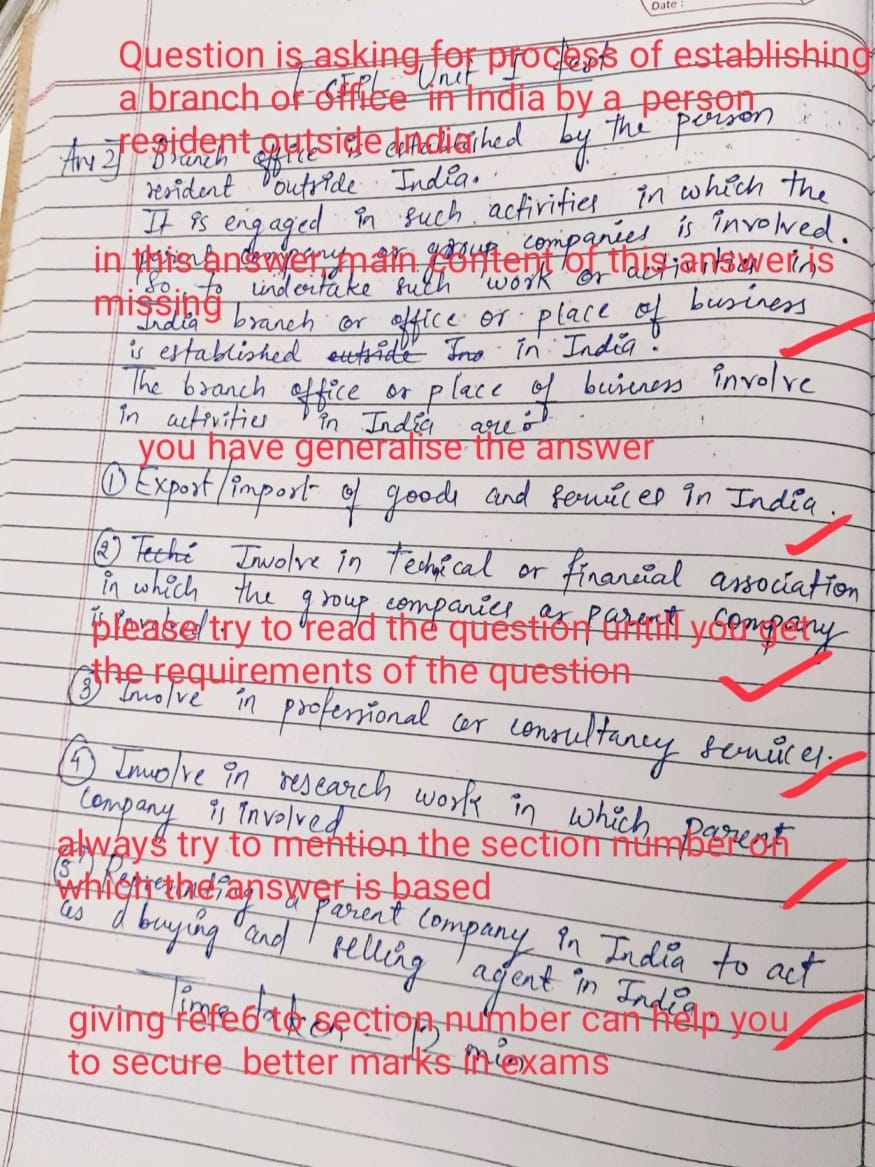 Date :
Question is asking for process of establishing
a branch or office in India by a person
resident outside India
Unit I test
Ans 2] Branch office is established by the person
resident outside India.
It is engaged in such activities in which the
parent company or group companies is involved.
in this answer main content of this answer is
missing
So to undertake such work or activities in
India branch or office or place of business
is established outside Ino in India.
The branch office or place of business involve
in activities in India are :
you have generalise the answer
① Export/import of goods and services in India.
② Techi Involve in technical or financial association
in which the group companies or parent company
is involved.
please try to read the question untill you get
the requirements of the question
③ Involve in professional or consultancy services.
④ Involve in research work in which parent
company is involved
always try to mention the section number on
which the answer is based
⑤ Representing a parent company in India to act
as a buying and selling agent in India.
Time taken - 12 min
giving refe6 to section number can help you
to secure better marks in exams